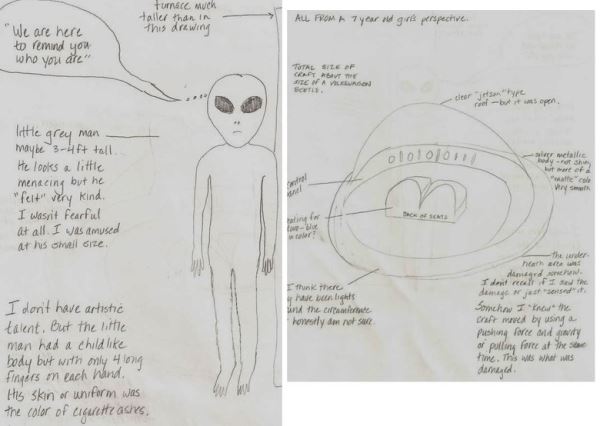 furnace much
taller than in
this drawing
"We are here
to remind you
who you are"
little grey man
maybe 3-4ft tall.
He looks a little
menacing but he
"felt" very kind.
I wasn't fearful
at all. I was amused
at his small size.
I don't have artistic
talent. But the little
man had a childlike
body but with only 4 long
fingers on each hand.
His skin or uniform was
the color of cigarette ashes.
ALL FROM A 7 year old girl's perspective.
TOTAL SIZE OF
CRAFT ABOUT THE
SIZE OF A VOLKSWAGON
BEETLE.
clear "jetson" type
roof - but it was open.
silver metallic
body - not shiny
but more of a
"matte" colo
very smooth
ontrol
anel
eating for
two - blue
in color?
BACK OF SEATS
the under-
neath area was
damaged somehow.
I don't recall if I saw the
damage or just "sensed" it.
I think there
y have been lights
und the circumference
honestly am not sure.
Somehow I "knew" the
craft moved by using a
pushing force and gravity
or pulling force at the same
time. This was what was
damaged.